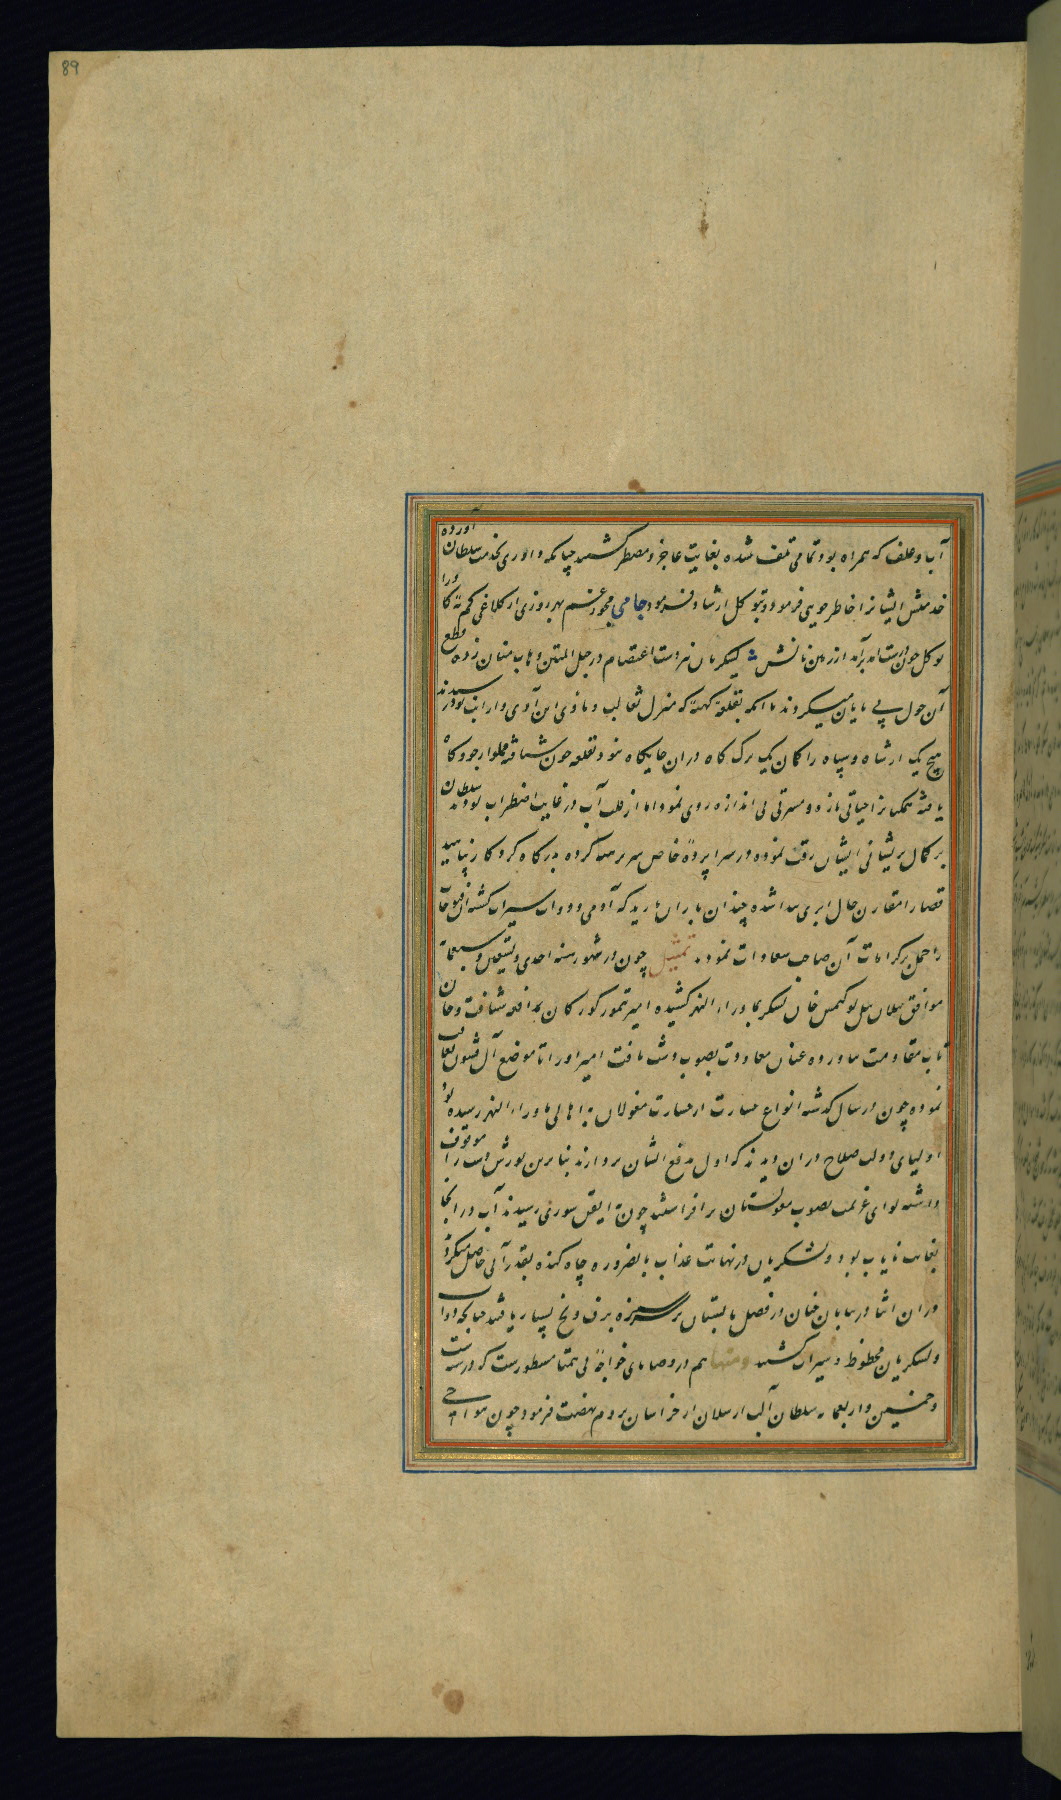 89
آب و علف که همراه بود تمامی تلف شده بغایت عاجز و مضطر گشتند چنانکه داوری بخدمت سلطان آورده
خدمتش ایشانرا خاطر جویی فرمود و بتوکل ارشاد فرمود جامی مخور غم بهر روزی از کلاغی کم نه کاورا
توکل چون درست آمد برآمد از زمین نانش لشکریان نیز دست اعتصام در حبل المتین وهاب منان زده قطع
آن چول بی پایان میکردند تا آنکه بقلعه کهنه که منزل ثعالب و ماوی ابن آوی و ارانب بود رسیدند
هیچ یک از شاه و سپاه را گمان یک برگ کاه در ان جایگاه نبود بقلعه چون شتافته مملو از جو و کاه
یافته همگنانرا حیاتی تازه و مسرتی بی اندازه روی نمود اما از طلب آب در غایت اضطراب بودند سلطان
بر کمال پریشانی ایشان رقت نموده در سراپرده خاص سر برهنه کرده بدرگاه کردگار نیایید
قضا را مقارن حال ابری پیدا شده چندان باران بارید که آدمی و دواب سیراب گشته آن فتوحات
را حمل بر کرامات آن صاحب سعادات نمودند تمثیل چون در شهور سنه احدی و تسعین و سبعمائه
موافق ییلان ییل توقتمش خان لشکر بماوراء النهر کشیده امیر تیمور کورکان بمدافعه شتافت و خان
تاب مقاومت نیاورده عنان معاودت بصوب دشت تافت امیر او را تا موضع آل قشون تعاقب
نموده چون در سال گذشته انواع خسارت از جسارت مغولان به اهالی ماوراء النهر رسیده بود
اولیای دولت صلاح در ان دیدند که اول بدفع ایشان پردازند بنا برین یورش دشت را موقوف
داشته لوای عزیمت بصوب مغولستان بر افراشتند چون به ایغل سوری رسیدند آب در آنجا
بغایت نایاب بود و لشکریان در نهایت عذاب بالضروره چاه کنده بقدر آبی حاصل میکردند
در ان اثنا در بیابان چنان در فصل تابستان بر سر سبزه برف و یخ بسیار یافتند چنانچه دواب
و لشکریان محظوظ و سیراب گشتند ومنها هم در وصایای خواجه بی همتا مسطورست که در سنه ست
و خمسین و اربعمائه سلطان آلب ارسلان از خراسان بروم نهضت فرمود چون هوا